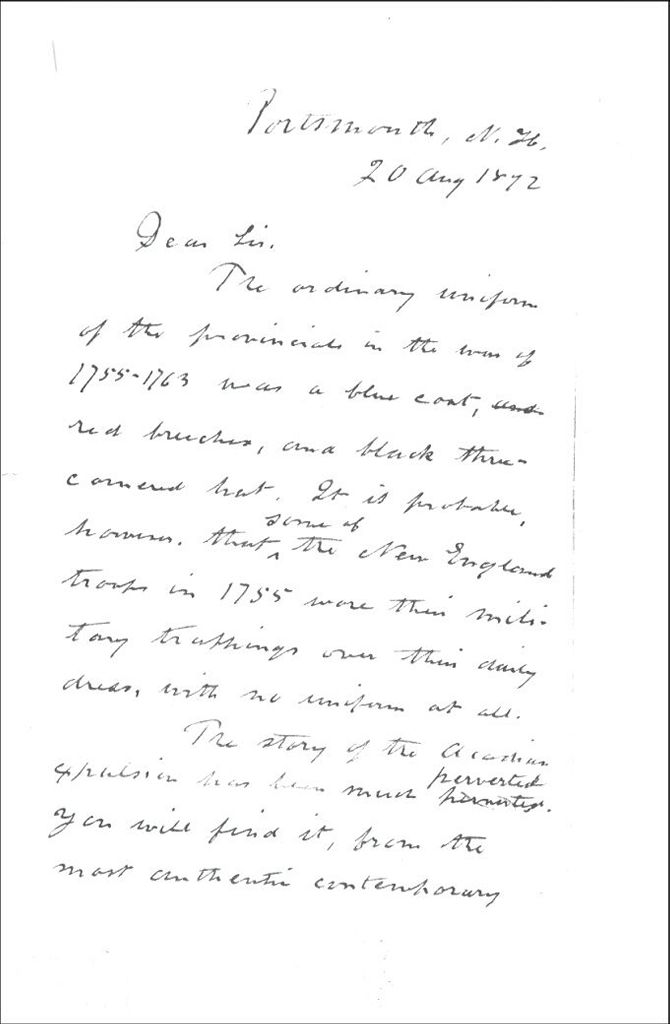 Portsmouth, N. H.
20 Aug 1892
Dear Sir.
The ordinary uniform
of the provincials in the war of
1755-1763 was a blue coat, and
red breeches, and black three-
cornered hat. It is probable,
however, that some of the New England
troops in 1755 wore their mili-
tary trappings over their daily
dress, with no uniform at all.
The story of the Acadian
expulsion has been much perverted
You will find it, from the
most authentic contemporary